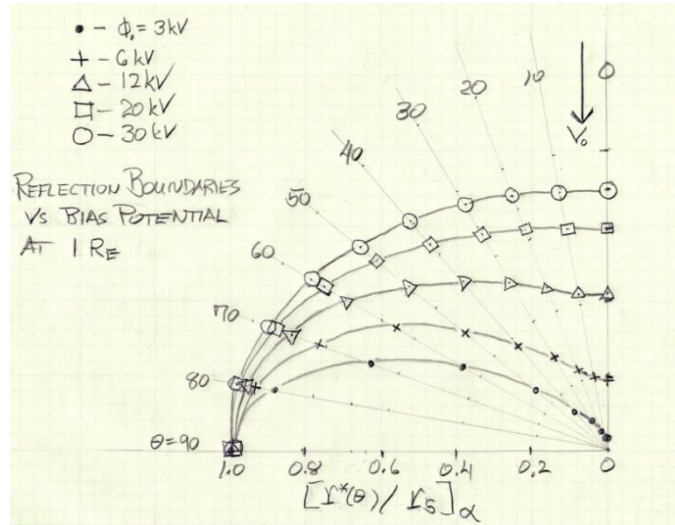 • – Φ₁ = 3 kV
+ – 6 kV
△ – 12 kV
□ – 20 kV
○ – 30 kV
REFLECTION BOUNDARIES
VS BIAS POTENTIAL
AT 1 RE
0
10
20
30
40
50
60
70
80
θ=90
V₀
1.0 0.8 0.6 0.4 0.2 0
[r*(θ)/r5]α